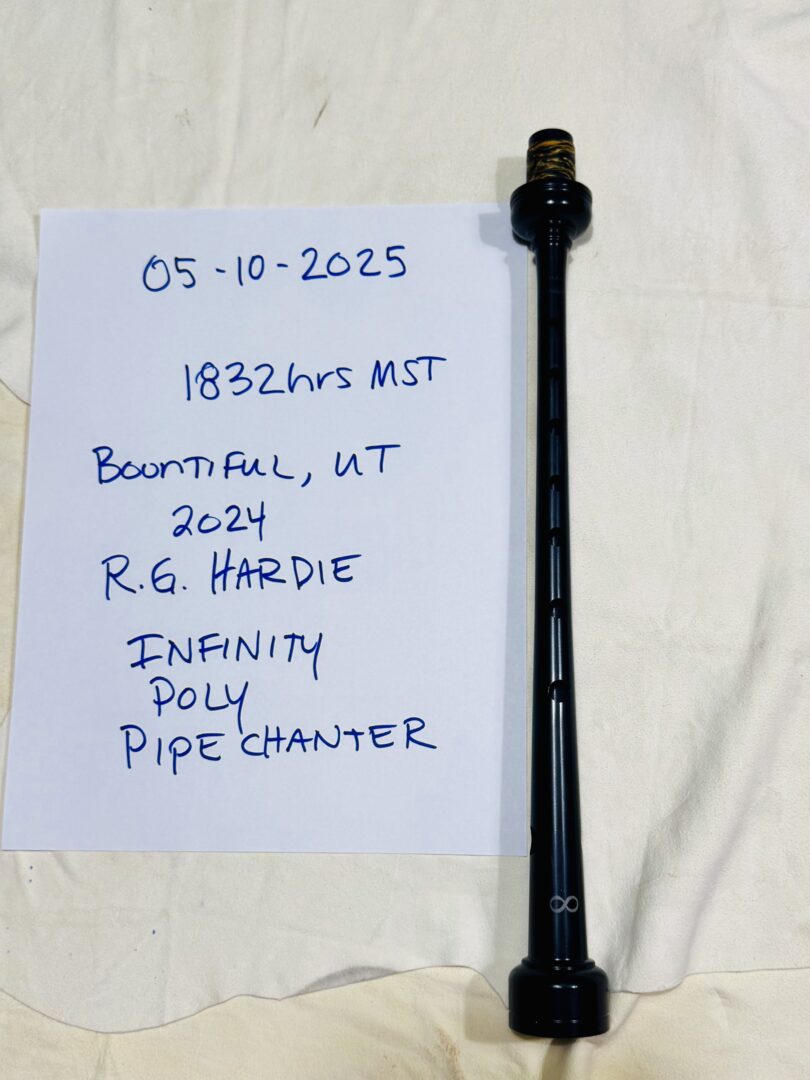 05-10-2025
1832hrs MST
BOUNTIFUL, UT
2024
R.G. HARDIE
INFINITY
POLY
PIPE CHANTER
∞